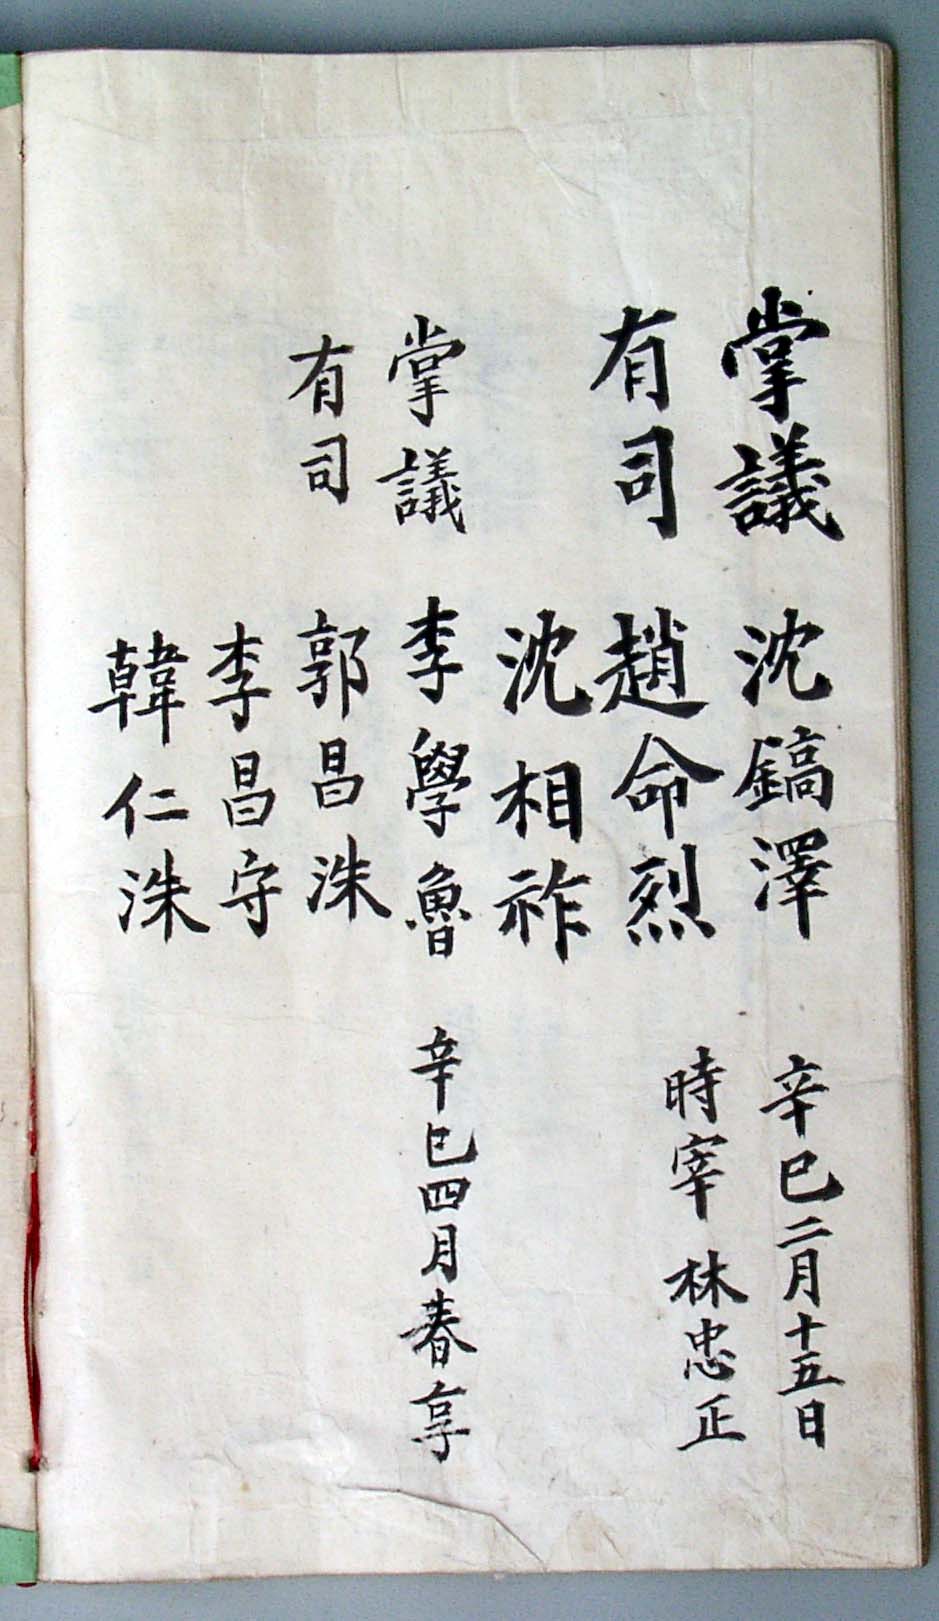 掌議 沈鎬澤 辛巳二月十五日
時宰 林忠正
有司 趙命烈
沈相祚
掌議 李學魯 辛巳四月春享
有司 郭昌洙
李昌守
韓仁洙